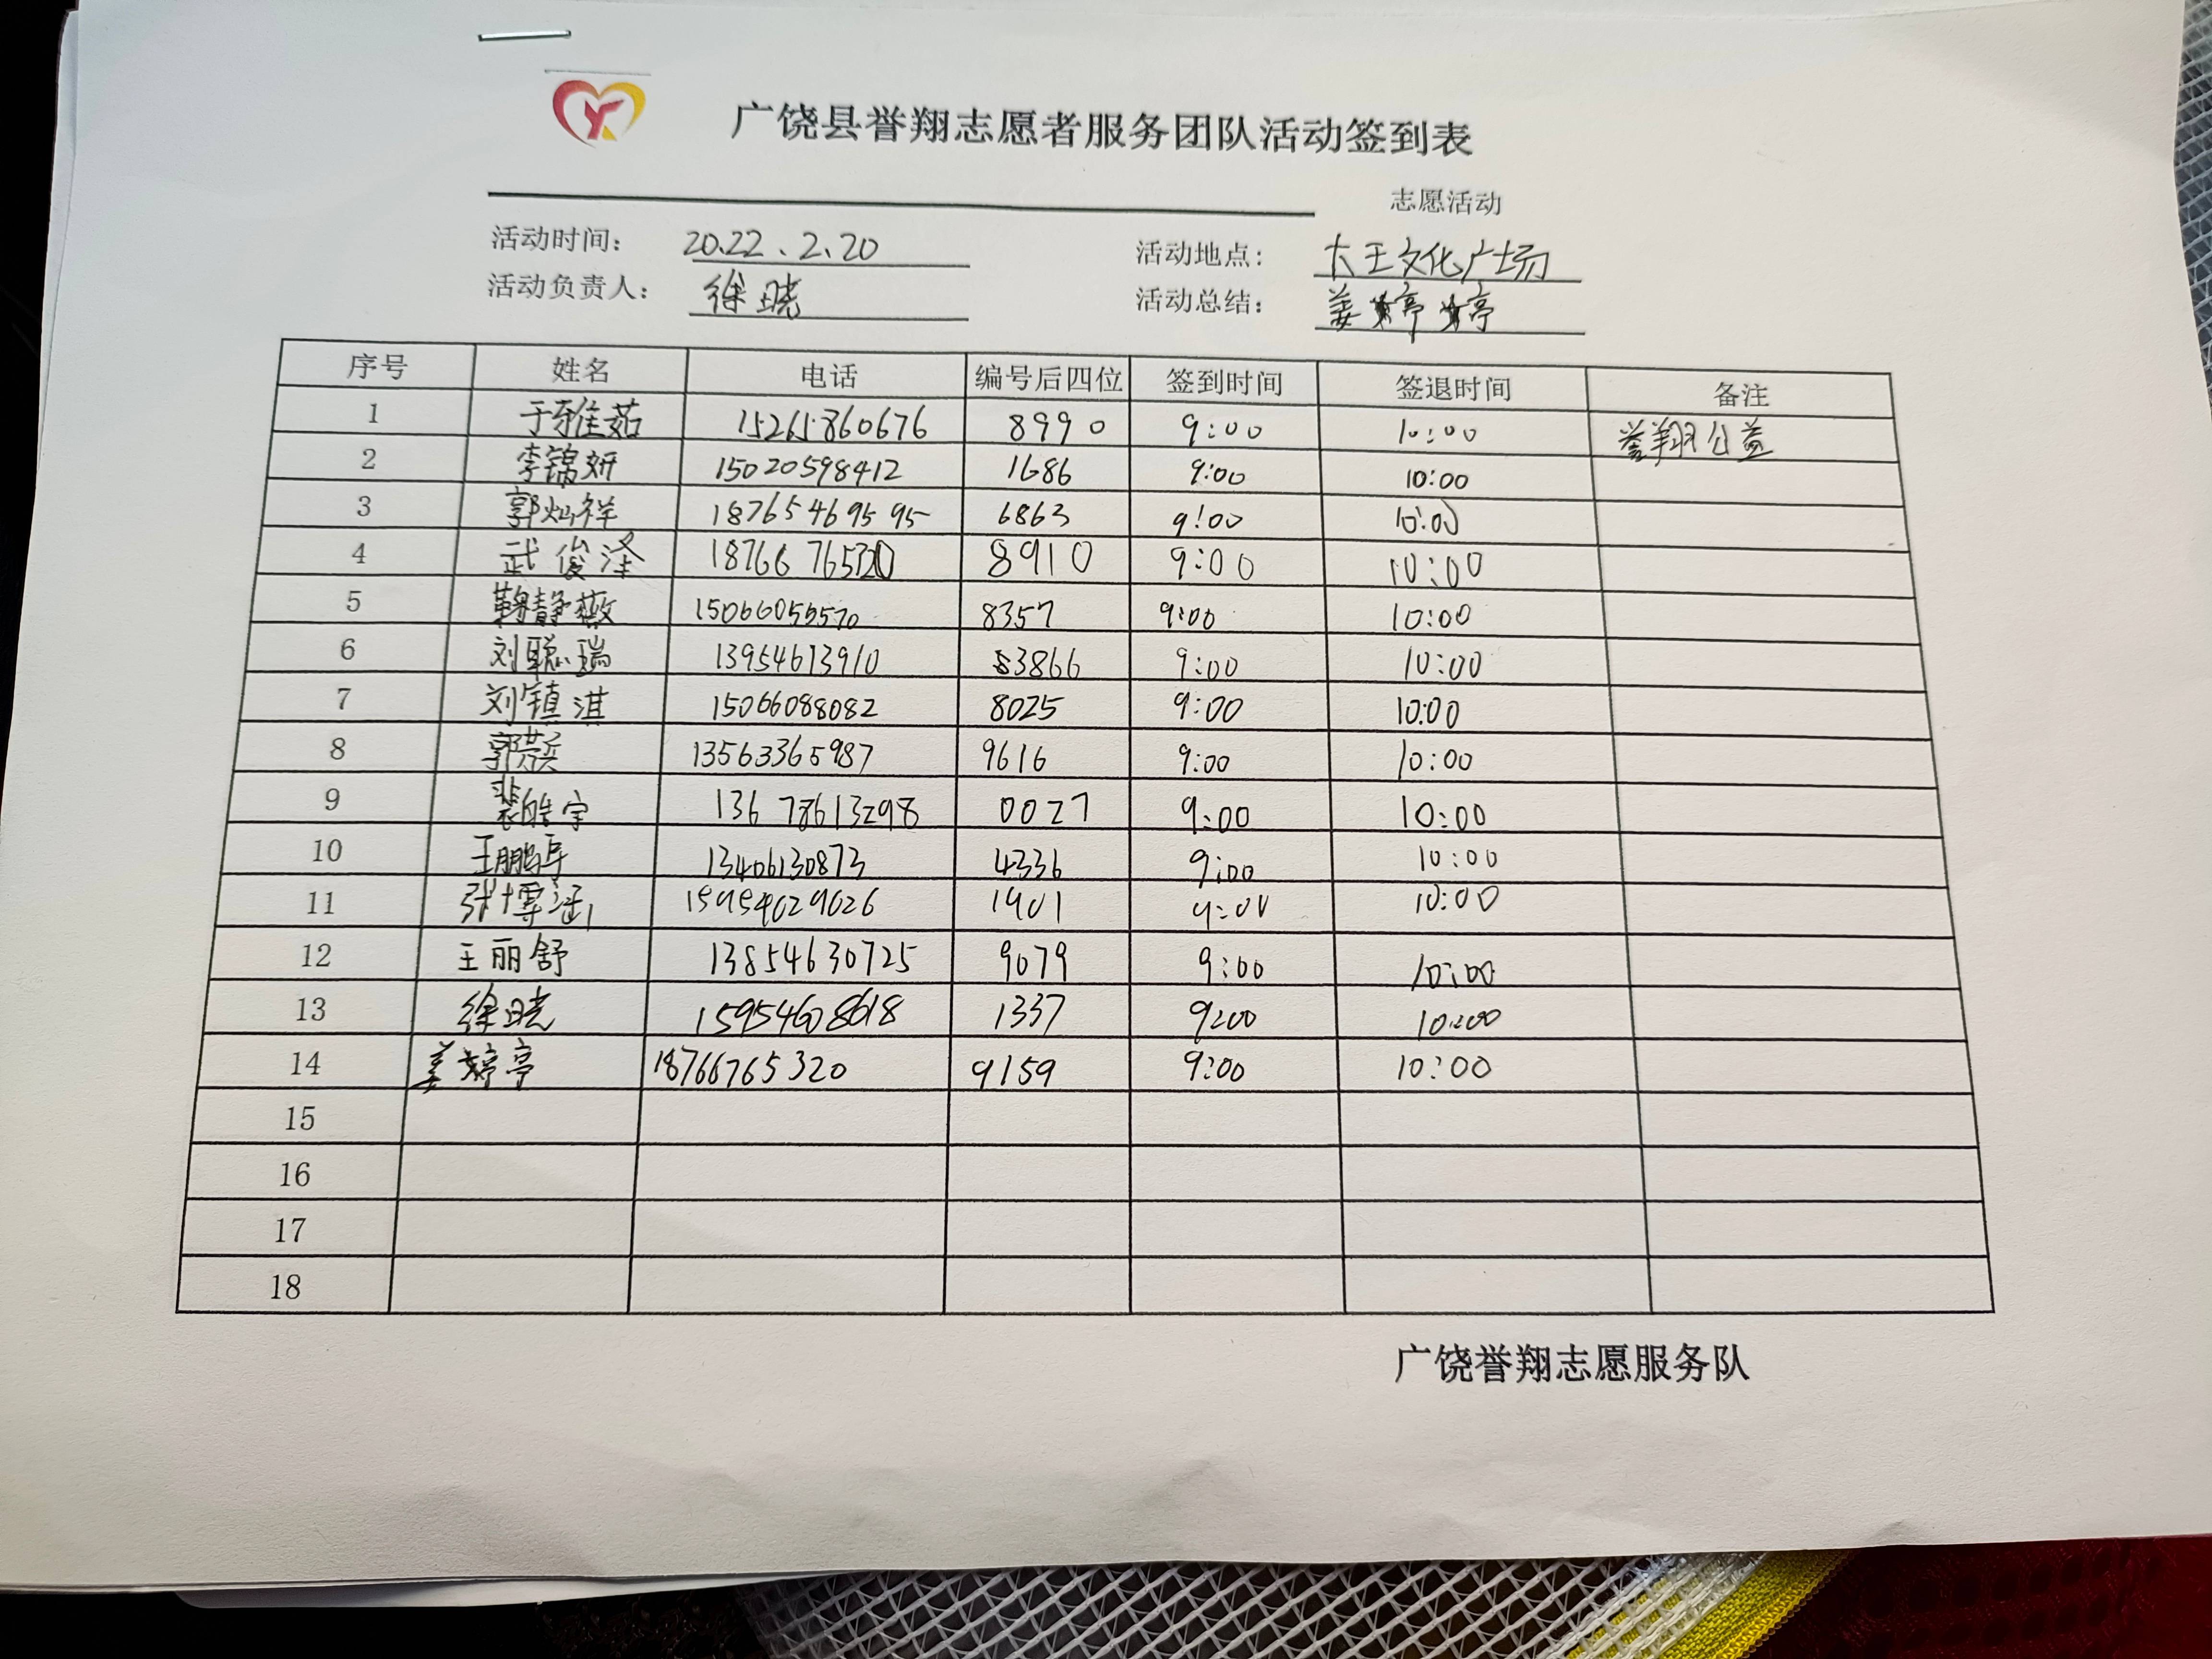 广饶县誉翔志愿者服务团队活动签到表
志愿活动
活动时间: 20.22、2、20 活动地点: 大王文化广场
活动负责人: 徐晓 活动总结: 姜婷婷
序号 姓名 电话 编号后四位 签到时间 签退时间 备注
1 于雅茹 15265860676 8990 9:00 10:00 誉翔公益
2 李锦妍 15020598412 1686 9:00 10:00
3 郭灿祥 18765469595 6863 9:00 10:00
4 武俊泽 18766765320 8910 9:00 10:00
5 鞠静薇 8357 9:00 10:00
6 刘聪瑞 13954613910 3866 9:00 10:00
7 刘镇淇 15066088082 8025 9:00 10:00
8 13563365987 9616 9:00 10:00
9 裴皓宇 13678613298 0027 9:00 10:00
10 13406130873 4336 9:00 10:00
11 张博涵 15954029026 1901 9:00 10:00
12 王丽舒 13854630725 9079 9:00 10:00
13 徐晓 15954608618 1337 9:00 10:00
14 姜婷婷 18766765320 9159 9:00 10:00
15
16
17
18
广饶誉翔志愿服务队